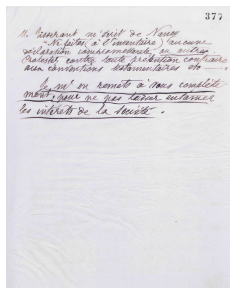 377
M. Tisserant m'écrit de Nancy
"Ne faites à l'inventaire) aucune
déclaration compromettante, ou autres.
Protester contre toute prétention contraire
aux conventions testamentaires etc
Je m'en remets à vous complète
ment, pour ne pas laisser entamer
les intérêts de la Société.